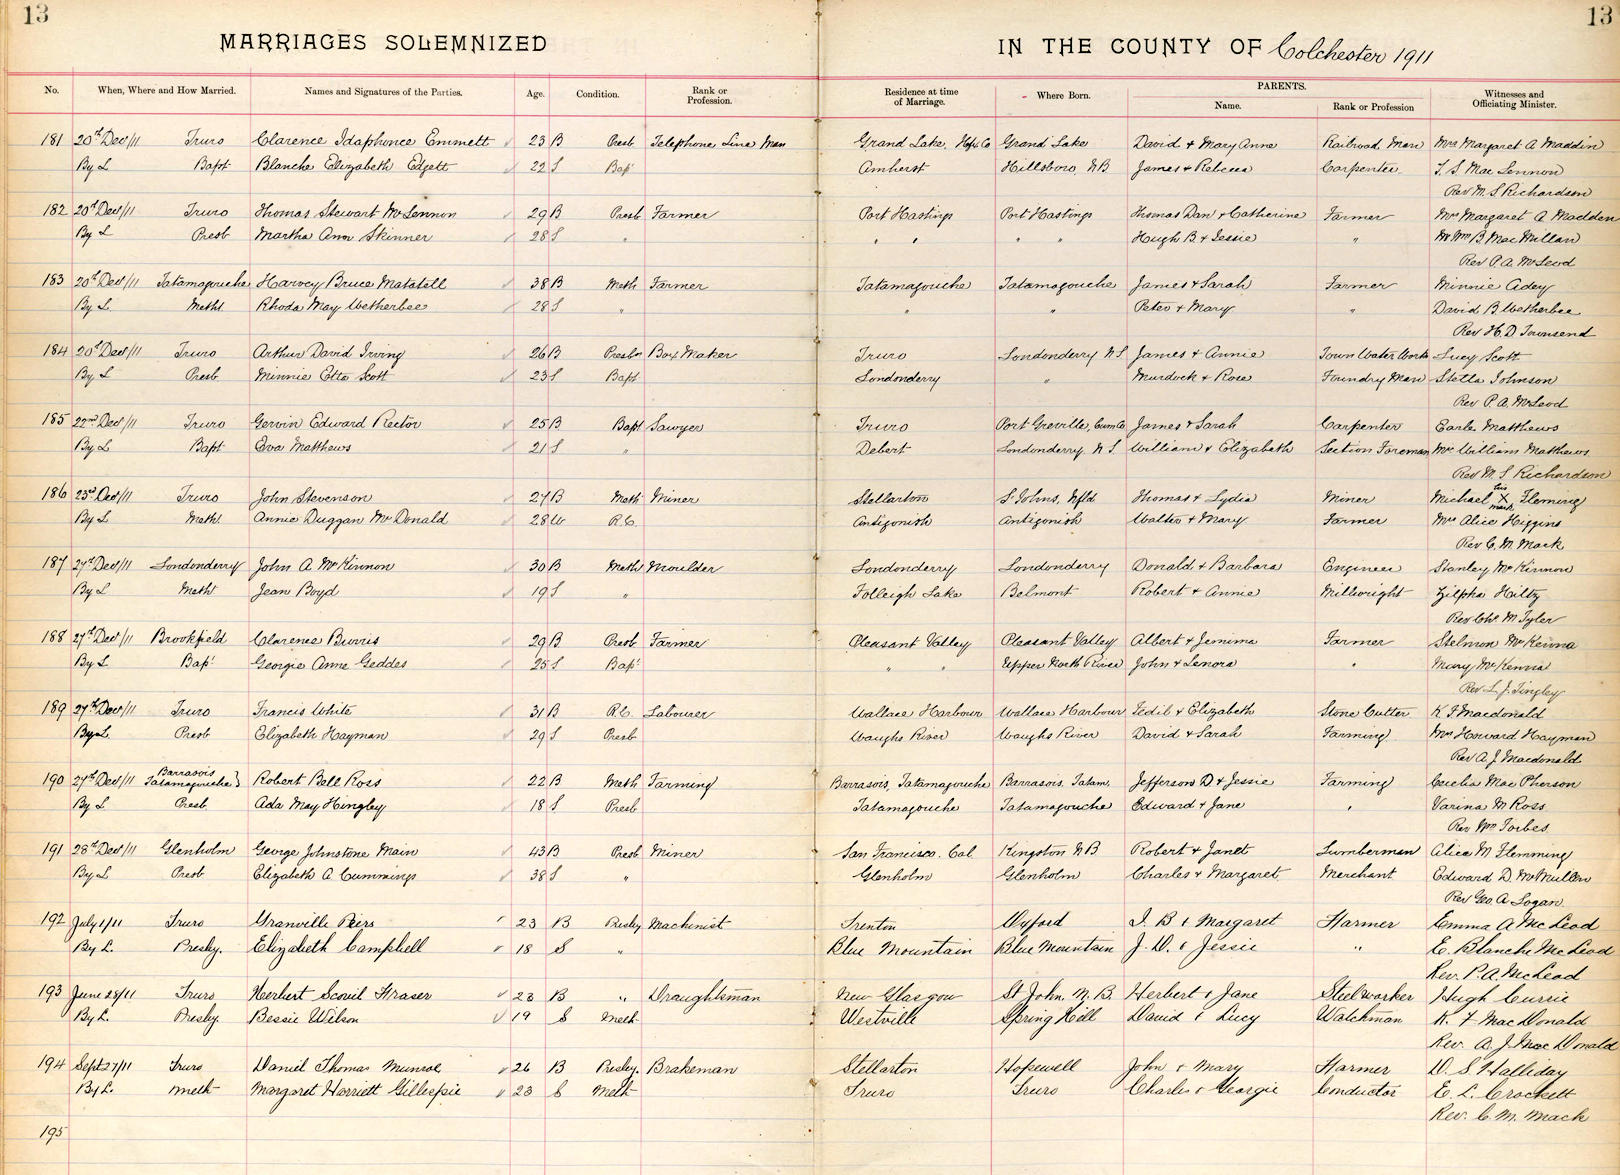 13
13
MARRIAGES SOLEMNIZED IN THE COUNTY OF Colchester 1911
No. When, Where and How Married. Names and Signatures of the Parties. Age. Condition. Rank or Profession. Residence at time of Marriage. Where Born. PARENTS. Name. Rank or Profession Witnesses and Officiating Minister.
181 20th Dec/11 Truro Clarence Idaphonce Emmett 23 B Presb Telephone Line Man Grand Lake, Hfx Co Grand Lake David & Mary Anne Railroad Man Mrs Margaret A Maddin
By L Bapt Blanche Elizabeth Edgett 22 S Bap Amherst Hillsboro, N B James & Rebecca Carpenter T. S. Mac Lennon
Rev M. S Richardson
182 20th Dec/11 Truro Thomas Stewart McLennon 29 B Presb Farmer Port Hastings Port Hastings Thomas Dan & Catherine Farmer Mrs Margaret A Madden
By L Presb Martha Ann Skinner 28 S " " " " " Hugh B. & Jessie " Mr Wm B. Mac Millan
Rev P. A. McLeod
183 20th Dec/11 Tatamagouche Harvey Bruce Matatall 38 B Meth Farmer Tatamagouche Tatamagouche James & Sarah Farmer Minnie Adey
By L Metht Rhoda May Wetherbee 28 S " " " Peter & Mary " David B. Wetherbee
Rev H. D Townsend
184 20th Dec/11 Truro Arthur David Irving 26 B Presbn Box Maker Truro Londonderry N S James & Annie Town Water Works Lucy Scott
By L Presb Minnie Etta Scott 23 S Bapt Londonderry " Murdock & Rose Foundry Man Stella Johnson
Rev P. A. McLeod
185 22nd Dec/11 Truro Gervin Edward Rector 25 B Bapt Sawyer Truro Port Greville, Cum Co James & Sarah Carpenter Earle Matthews
By L Bapt Eva Matthews 21 S " Debert Londonderry N. S. William & Elizabeth Section Foreman Mrs William Matthews
Rev M. S. Richardson
186 23rd Dec/11 Truro John Stevenson 27 B Meth Miner Stellarton St Johns, Nfld Thomas & Lydia Miner Michael his X mark Fleming
By L. Meth. Annie Duggan McDonald 28 W R. C. Antigonish Antigonish Walter & Mary Farmer Mrs Alice Higgins
Rev C. M. Mack
187 27th Dec/11 Londonderry John A McKinnon 30 B Meth Moulder Londonderry Londonderry Donald & Barbara Engineer Stanley McKinnon
By L Metht Jean Boyd 19 S " Folleigh Lake Belmont Robert & Annie Millwright Zilpha Hiltz
Rev Chs M Tyler
188 27th Dec/11 Brookfield Clarence Burris 29 B Presb Farmer Pleasant Valley Pleasant Valley Albert & Jemima Farmer Stelmon McKenna
By L Bapt Georgie Anne Geddes 25 S Bapt " " Upper North River John & Lenora " Mary McKenna
Rev L. J. Tingley
189 27th Dec/11 Truro Francis White 31 B R. C. Labourer Wallace Harbour Wallace Harbour Fedil & Elizabeth Stone Cutter K F Macdonald
By L. Presb Elizabeth Hayman 29 S Presb Waughs River Waughs River David & Sarah Farming Mrs Howard Hayman
Rev A J. Macdonald
190 27th Dec/11 Barrasois Tatamagouche } Robert Bell Ross 22 B Meth Farming Barrasois, Tatamagouche Barrasois, Tatam. Jefferson D & Jessie Farming Cecelia Mac Pherson
By L. Presb Ada May Hingley 18 S Presb Tatamagouche Tatamagouche Edward & Jane " Varina M Ross
Rev Wm Forbes.
191 28th Dec/11 Glenholm George Johnstone Main 43 B Presb Miner San Francisco. Cal. Kingston N B Robert & Janet Lumberman Alice M Flemming
By L Presb Elizabeth A Cummings 38 S " Glenholm Glenholm Charles & Margaret Merchant Edward D McMullen
Rev Geo A Logan.
192 July 1/11 Truro Granville Peers 23 B Presby Machinist Trenton Oxford I. B & Margaret Farmer Emma A McLeod
By L. Presby. Elizabeth Campbell 18 S " Blue Mountain Blue Mountain J. D. & Jessie " E. Blanche McLeod
Rev. P. A. McLeod
193 June 28/11 Truro Herbert Scovil Fraser 23 B " Draughtsman New Glasgow St John, N. B. Herbert & Jane Steelworker Hugh Currie
By L. Presby. Bessie Wilson 19 S Meth Westville Spring Hill David & Lucy Watchman K. F MacDonald
Rev. A. J. MacDonald
194 Sept 27/11 Truro Daniel Thomas Munroe 26 B Presby. Brakeman Stellarton Hopewell John & Mary Farmer D. S Halliday
By L. Meth Margaret Harriett Gillespie 23 S Meth Truro Truro Charles & Georgie Conductor E. L. Crockett
Rev. C. M. Mack
195